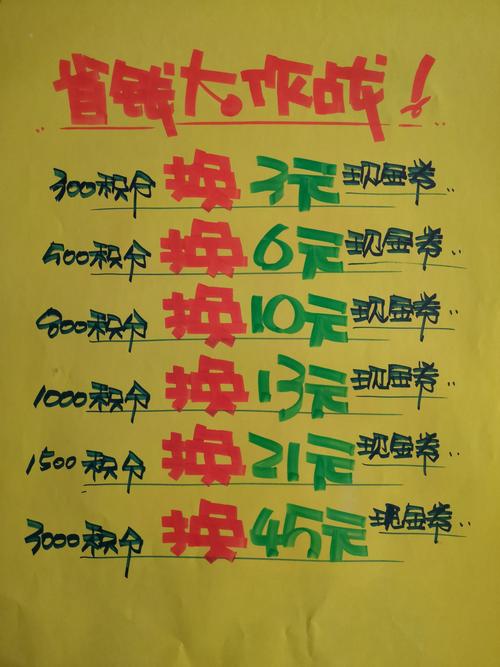 省钱大作战！
300积分换3元现金券..
500积分换6元现金券..
800积分换10元现金券..
1000积分换13元现金券..
1500积分换21元现金券..
3000积分换45元现金券..